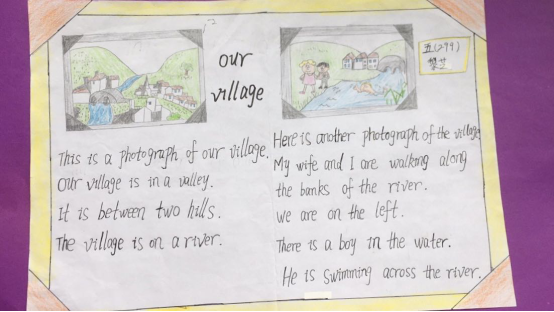 our
village
五(2班)
This is a photograph of our village.
Our village is in a valley.
It is between two hills.
The village is on a river.
Here is another photograph of the village
My wife and I are walking along
the banks of the river.
We are on the left.
There is a boy in the water.
He is swimming across the river.